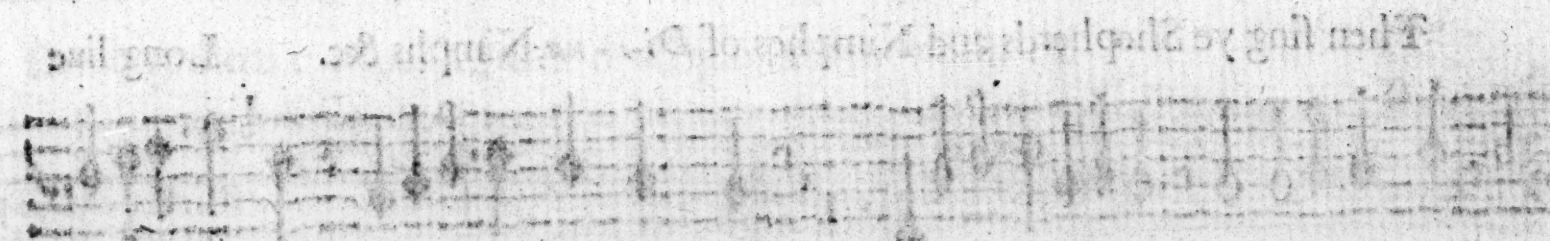 Then ſing ye Shepherds and Nimphes of Di- - na: Nimphs &c. Long liue